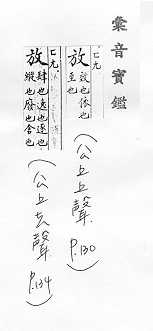 彙音寶鑑
七九
放 效也依也至也
(公上上聲 P.130)
七九
放 肆也逸也逐也縱也廢也舍也
(公上去聲 P.134)